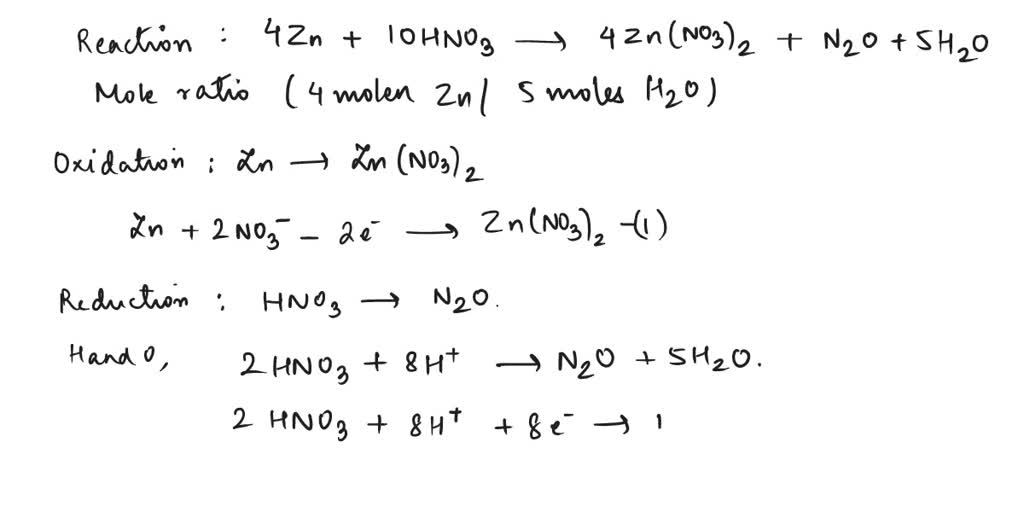 Reaction : 4Zn + 10HNO₃ → 4Zn(NO₃)₂ + N₂O + 5H₂O
Mole ratio (4 molen Zn / 5 moles H₂O)
Oxidation : Zn → Zn(NO₃)₂
Zn + 2NO₃⁻ - 2e⁻ → Zn(NO₃)₂ -(1)
Reduction : HNO₃ → N₂O.
H and O, 2HNO₃ + 8H⁺ → N₂O + 5H₂O.
2 HNO₃ + 8H⁺ + 8e⁻ → 1